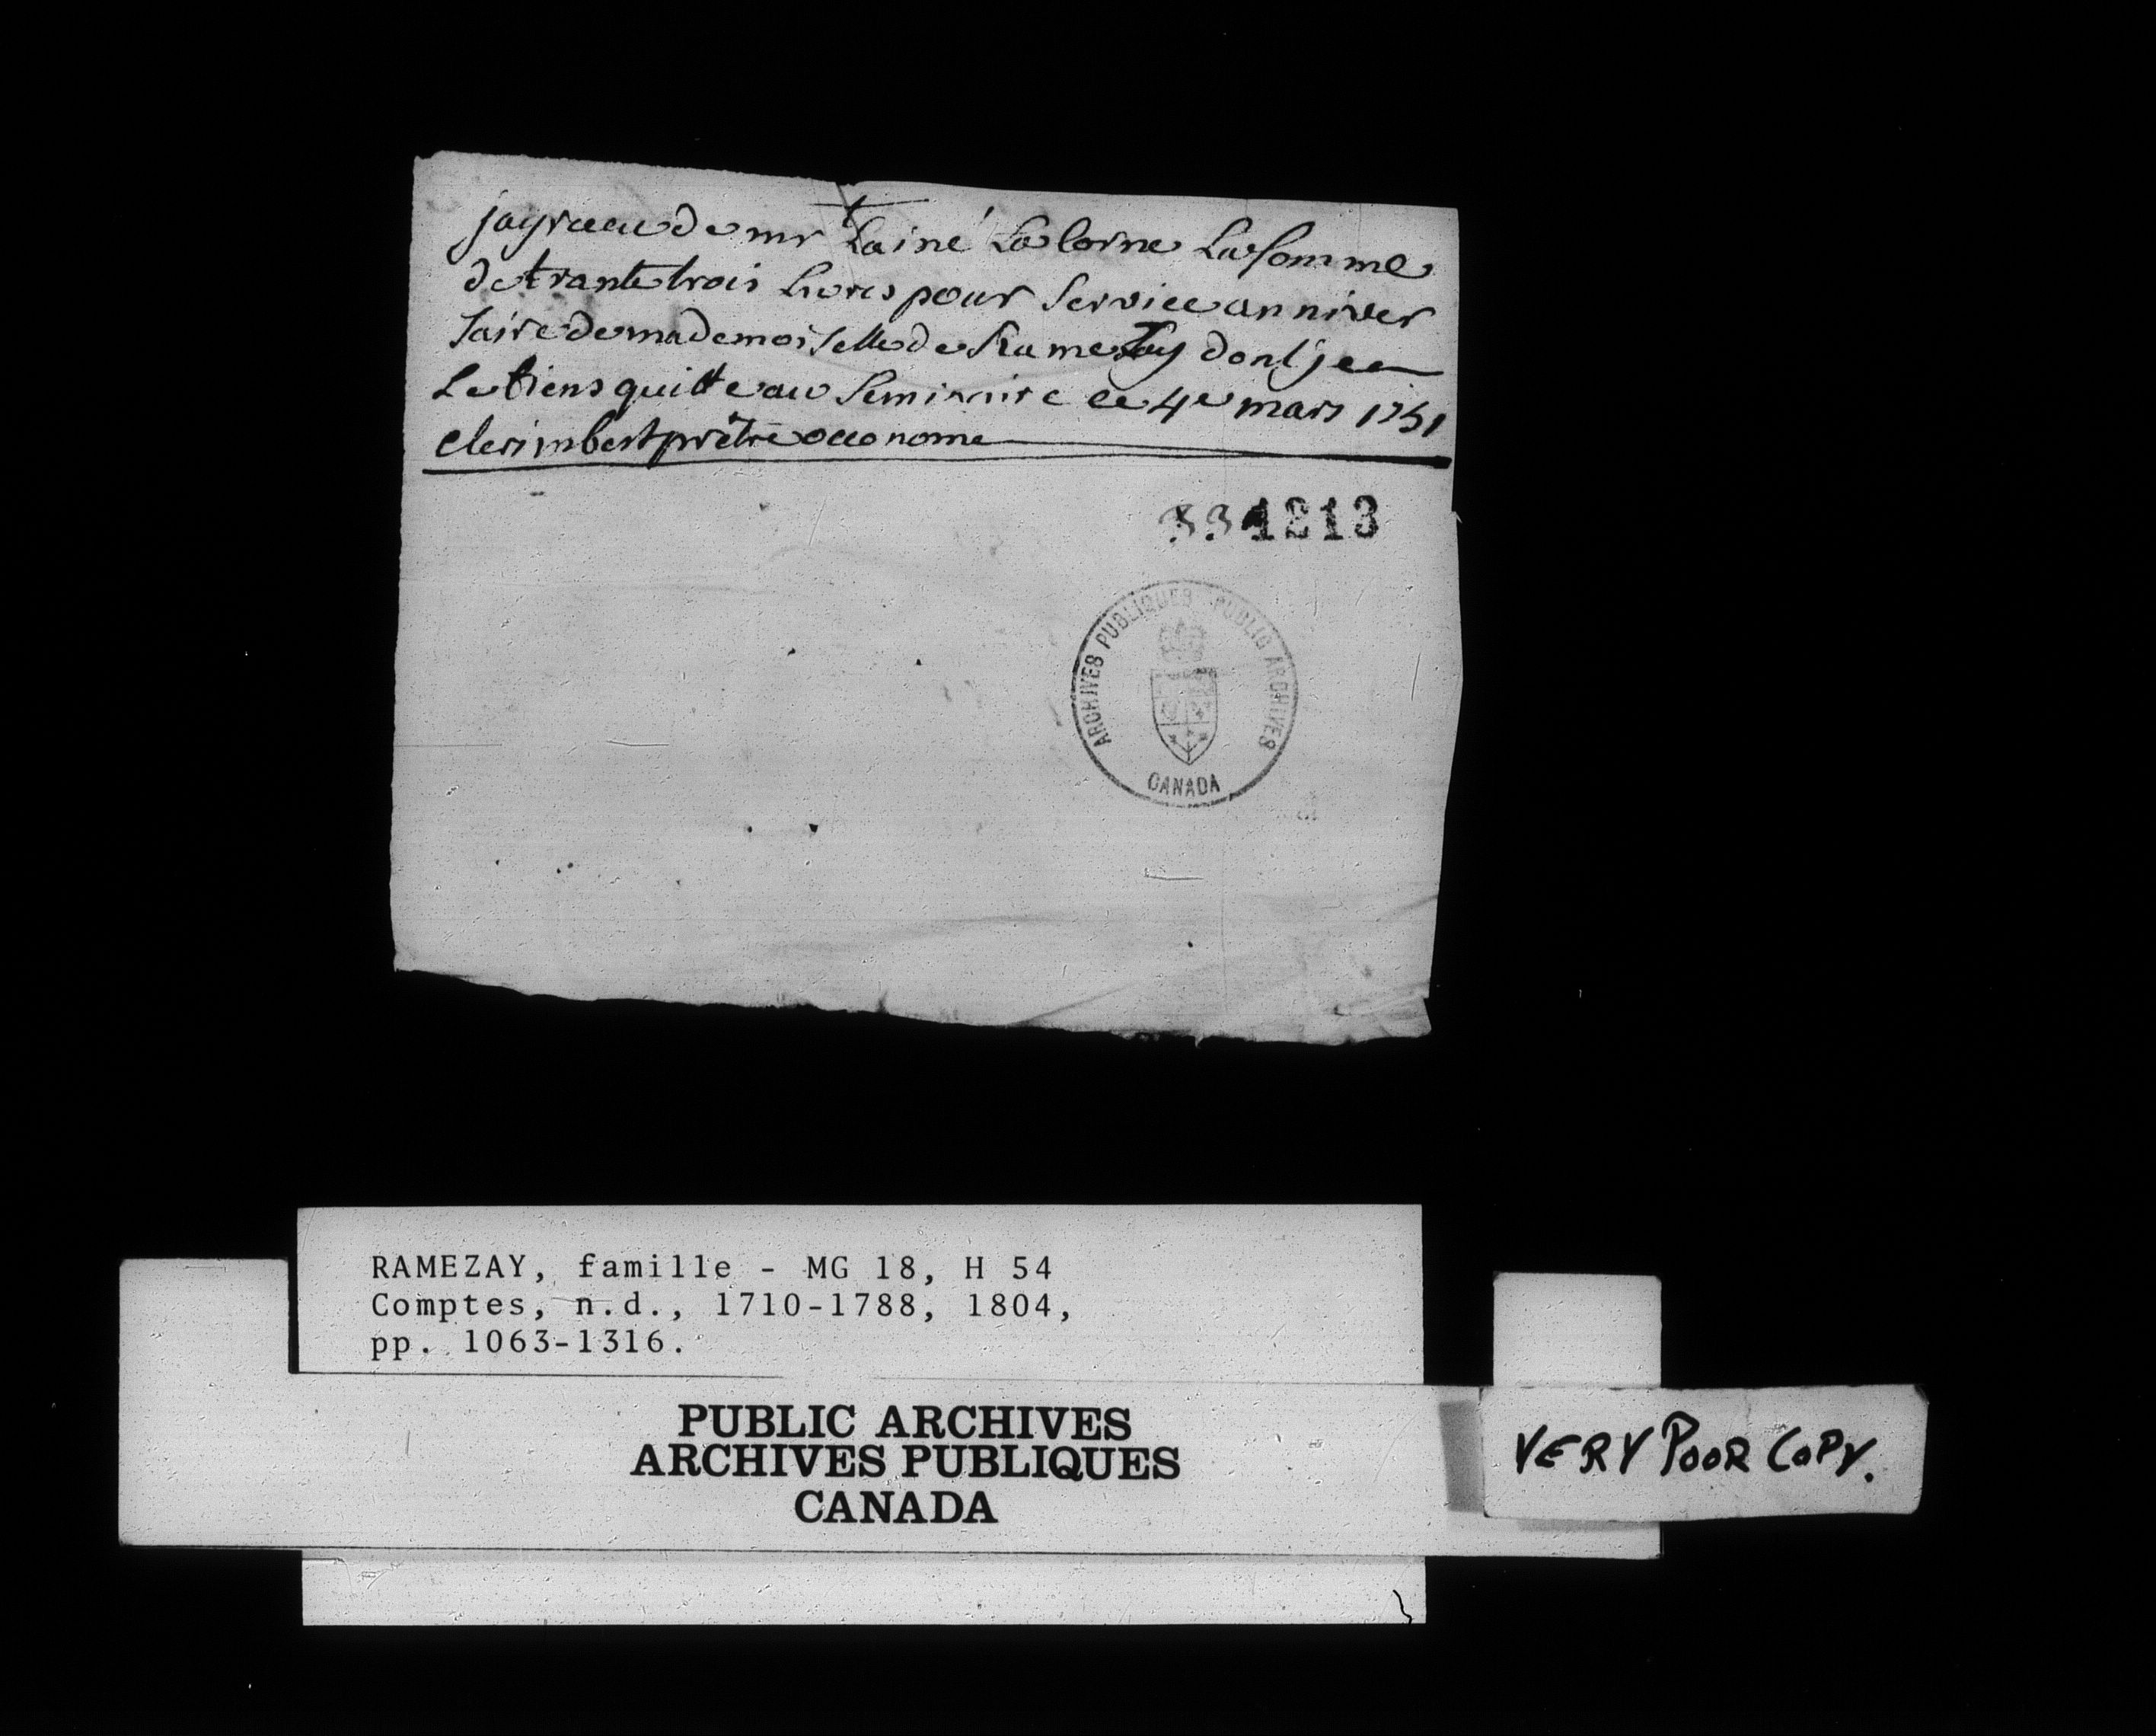 jay receu de mr Lainé Lacorne La somme
de trante trois livres pour service anniver
saire de mademoiselle de Ramezay dont je
Le tiens quitte au seminaire ce 4e mars 1751
clerimbert prêtre oeconome
33 1213
ARCHIVES PUBLIQUES PUBLIC ARCHIVES
CANADA
RAMEZAY, famille - MG 18, H 54
Comptes, n.d., 1710-1788, 1804,
pp. 1063-1316.
PUBLIC ARCHIVES
ARCHIVES PUBLIQUES
CANADA
VERY POOR COPY.